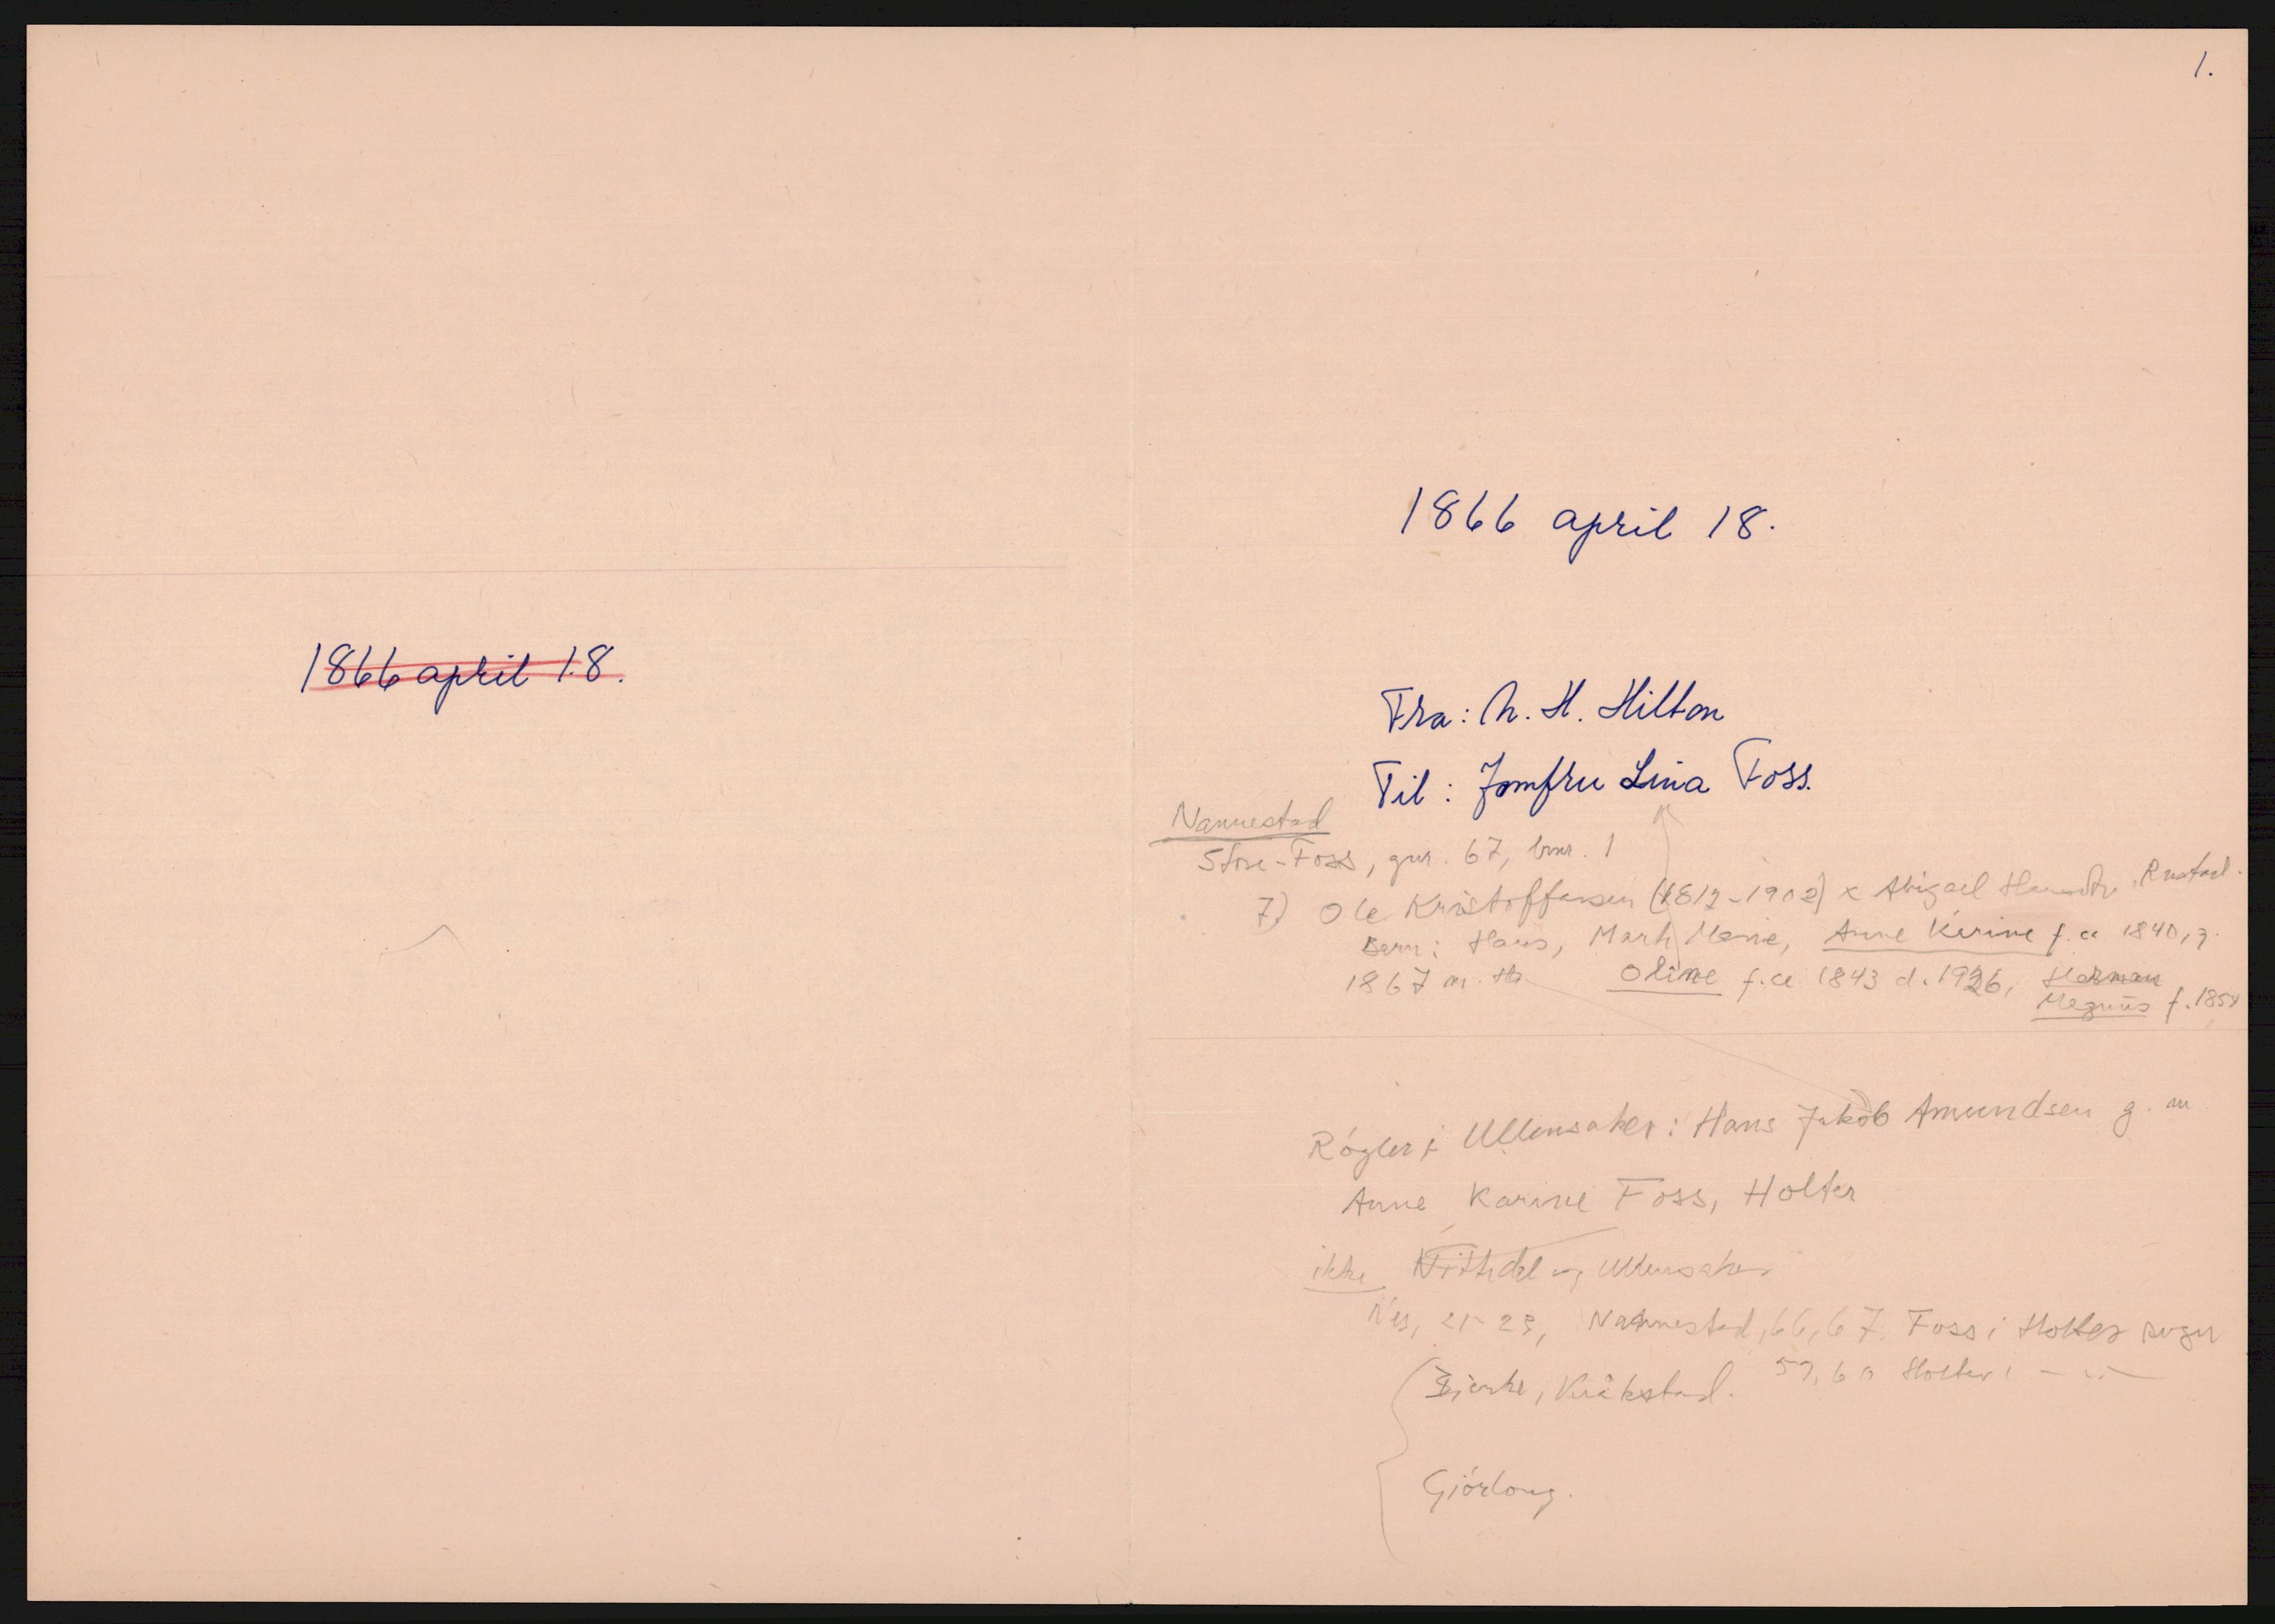 1866 april 18.
1.
1866 april 18.
Fra: N. H. Hilton
Til: Jomfru Lina Foss.
Nannestad
Store-Foss, gnr. 67, bnr. 1
7) Ole Kristoffersen (1812-1902) x Abigael Hansdtr.
Barn: Hans, Marte Marie, Anne Karine f. ca 1840, g.
1867 m. Oline f. ca 1843 d. 1926, Herman
Magnus f. 1854
Rógler i Ullensaker: Hans Jakob Amundsen g. m
Anne Karine Foss, Holter
ikke Nittedal og Ullensaker
Nes, 21-23, Nannestad, 66, 67. Foss i Holter sogn
Bjerke, Kråkstad. 59, 60 Holter i - " -
Gjórlong.